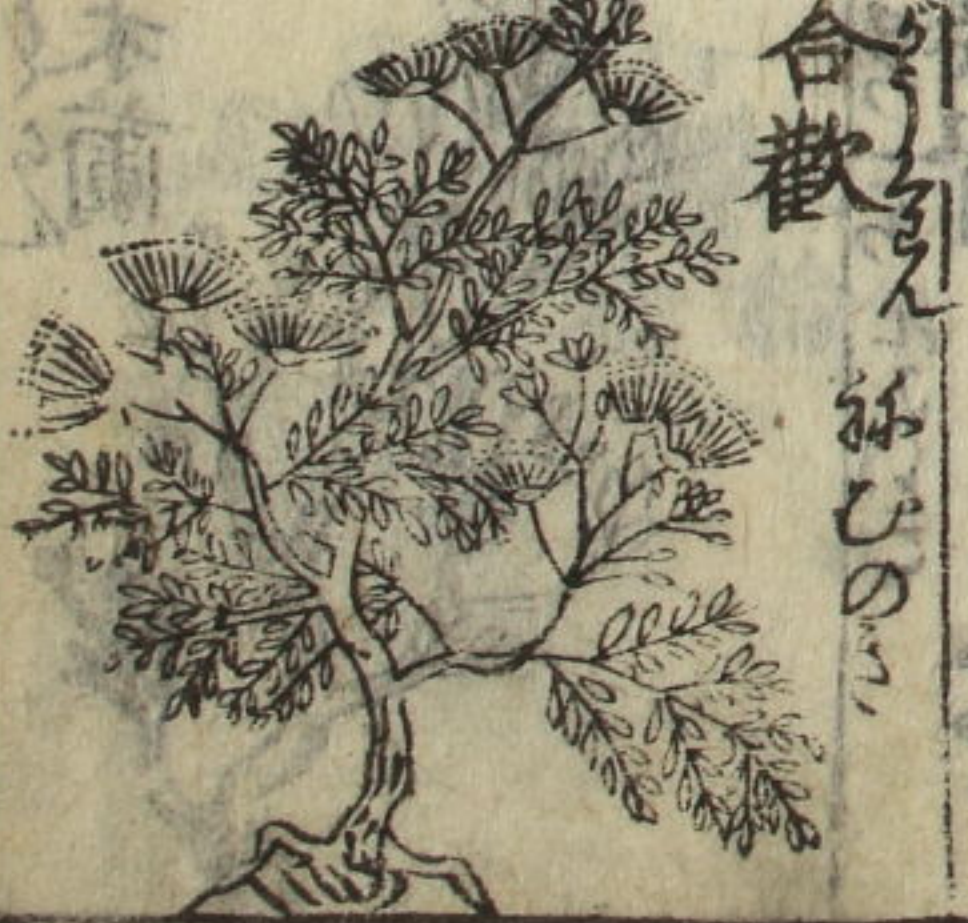 合歡
がうくわん
ねむのき